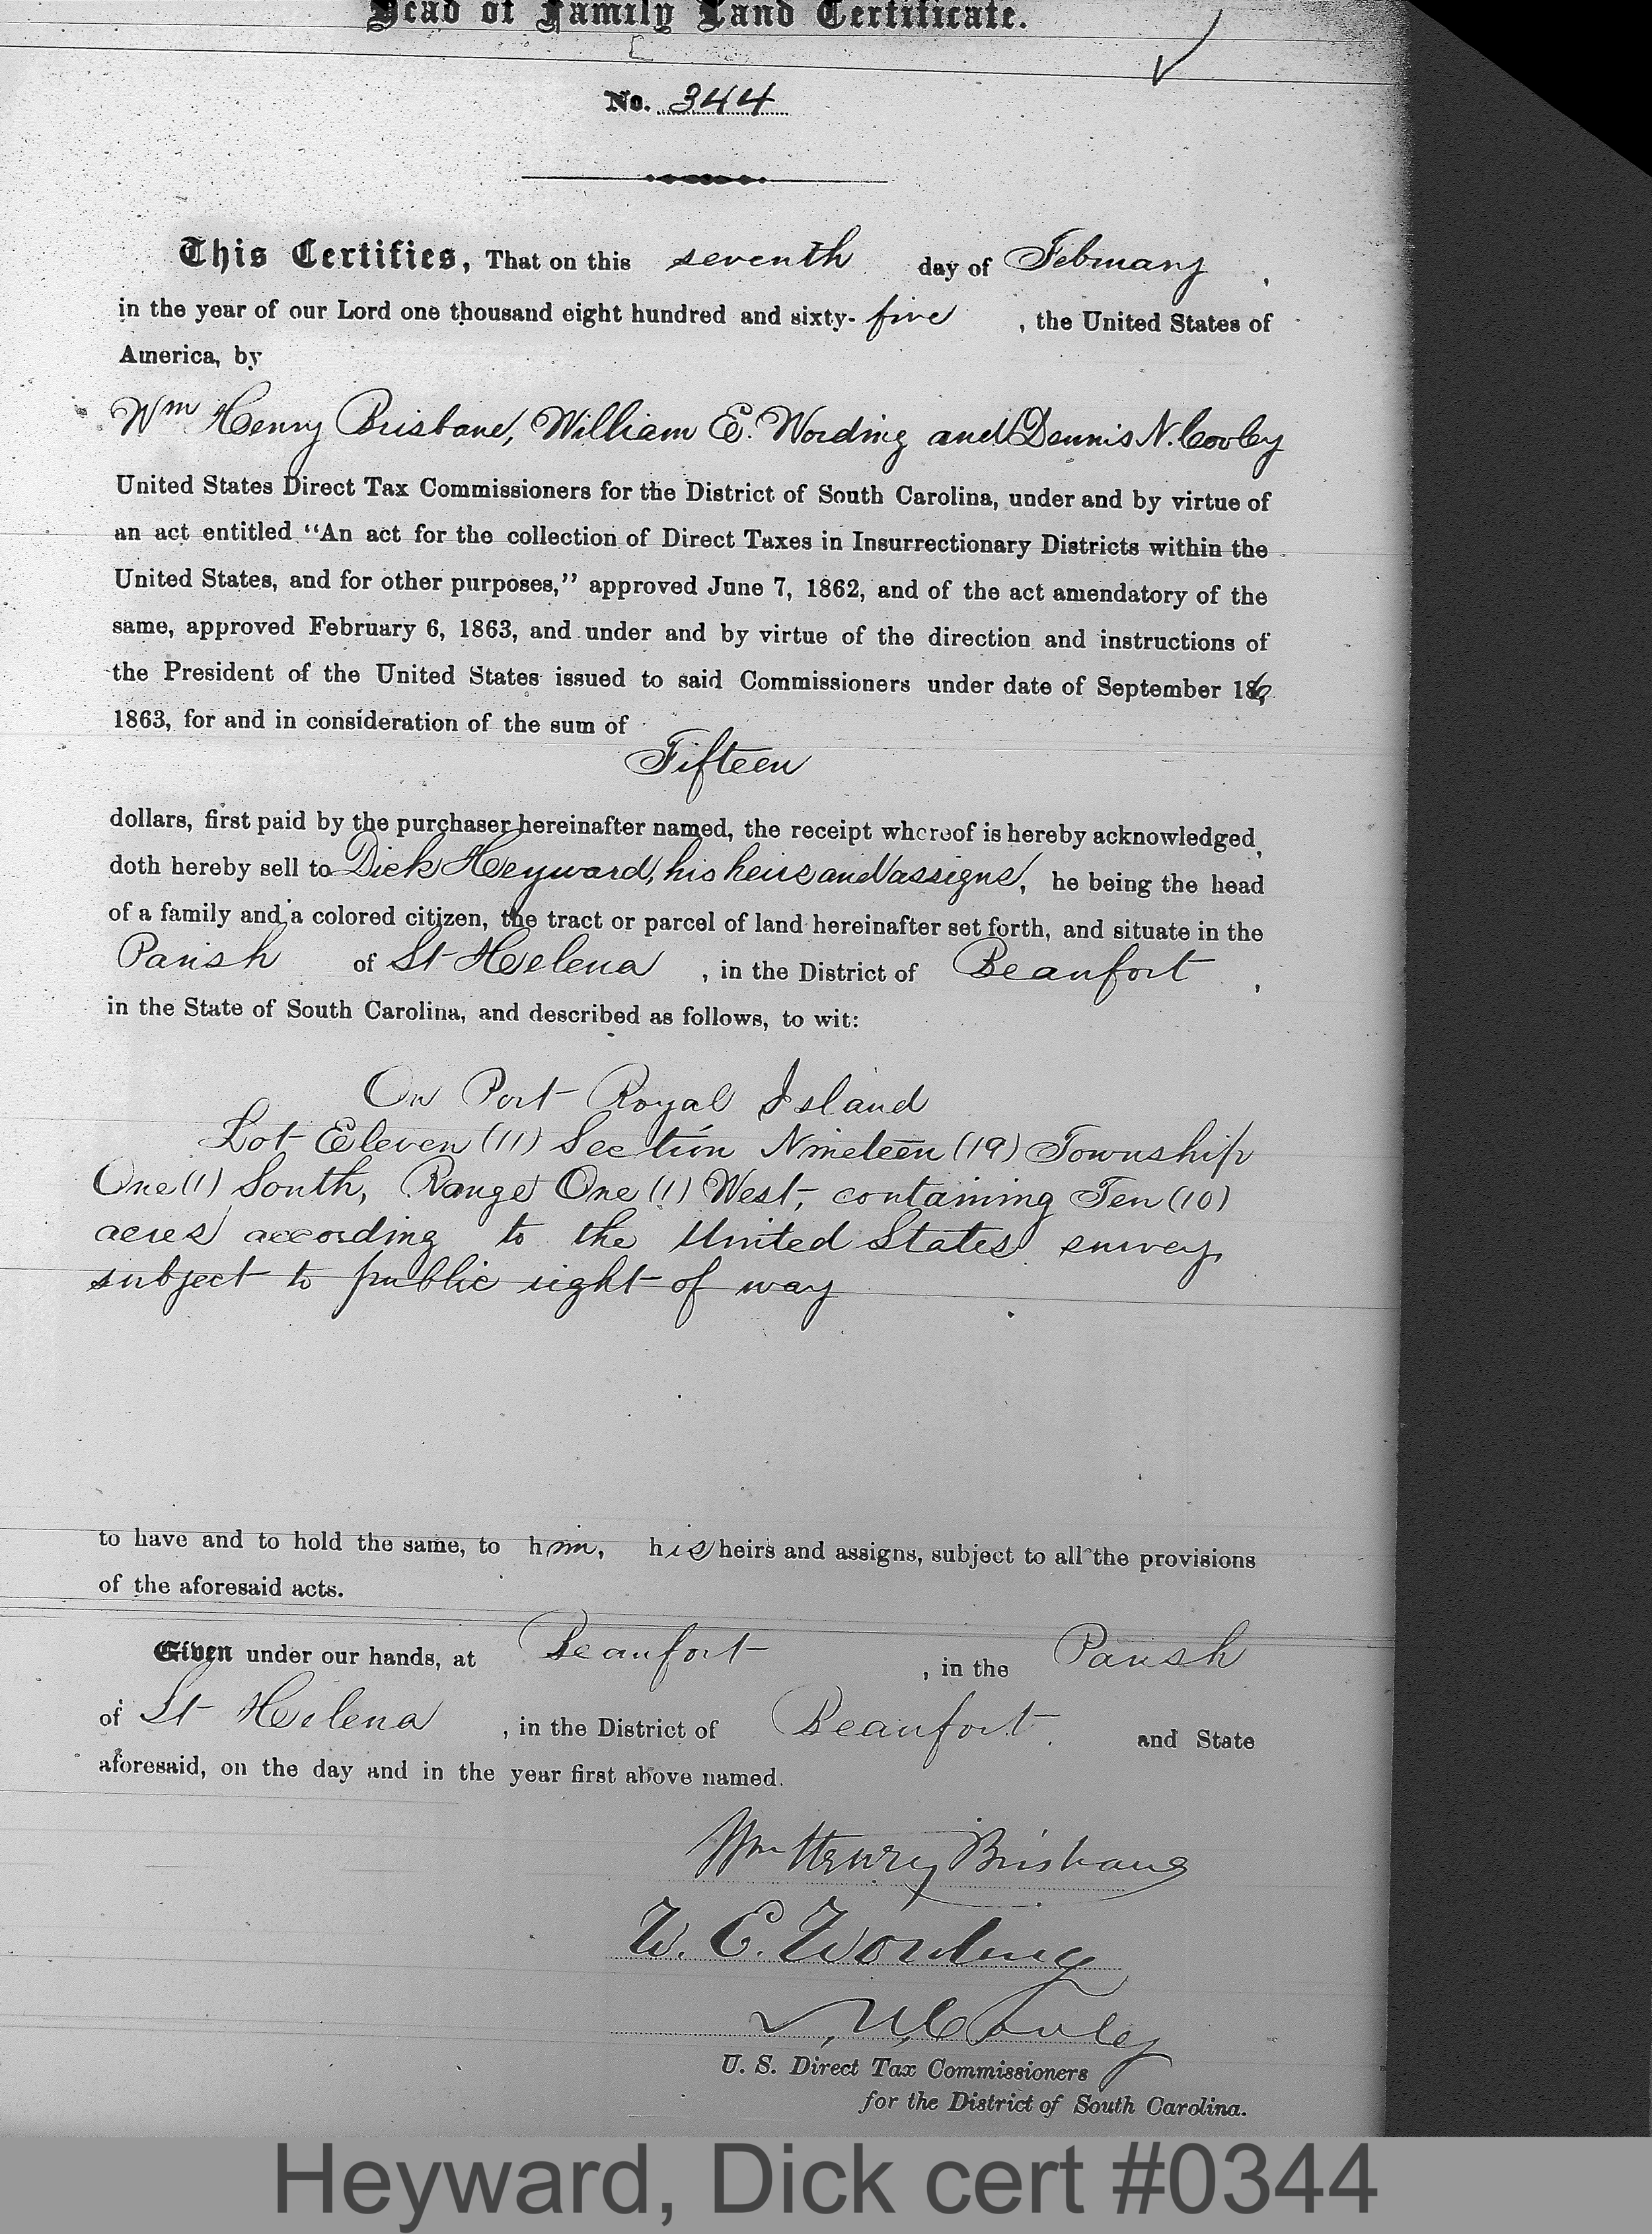 Head of Family Land Certificate.
No. 344
This Certifies, That on this seventh day of February,
in the year of our Lord one thousand eight hundred and sixty-five, the United States of
America, by
Wm Henry Brisbane, William E. Wording and Dennis N. Cooley
United States Direct Tax Commissioners for the District of South Carolina, under and by virtue of
an act entitled "An act for the collection of Direct Taxes in Insurrectionary Districts within the
United States, and for other purposes," approved June 7, 1862, and of the act amendatory of the
same, approved February 6, 1863, and under and by virtue of the direction and instructions of
the President of the United States issued to said Commissioners under date of September 16,
1863, for and in consideration of the sum of
Fifteen
dollars, first paid by the purchaser hereinafter named, the receipt whereof is hereby acknowledged,
doth hereby sell to Dick Heyward, his heirs and assigns, he being the head
of a family and a colored citizen, the tract or parcel of land hereinafter set forth, and situate in the
Parish of St Helena, in the District of Beaufort,
in the State of South Carolina, and described as follows, to wit:
On Port Royal Island
Lot Eleven (11) Section Nineteen (19) Township
One (1) South, Range One (1) West, containing Ten (10)
acres according to the United States survey,
subject to public right of way
to have and to hold the same, to him, his heirs and assigns, subject to all the provisions
of the aforesaid acts.
Given under our hands, at Beaufort, in the Parish
of St Helena, in the District of Beaufort and State
aforesaid, on the day and in the year first above named.
Wm Henry Brisbane
W. E. Wording
D. N. Cooley
U. S. Direct Tax Commissioners
for the District of South Carolina.
Heyward, Dick cert #0344